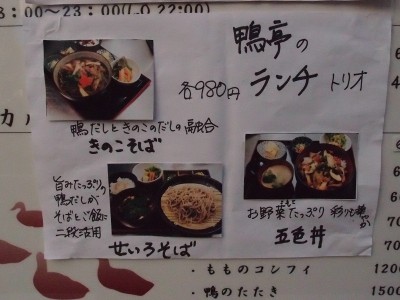 8:00〜23:00(L.O 22:00)
鴨亭の
ランチ トリオ
各980円
鴨だしときのこのだしの融合
きのこそば
旨みたっぷりの
鴨だしが
そばとご飯に
二段活用
せいろそば
お野菜たっぷり 彩りも華やか
五色丼
・ももコンフィ 1200
・鴨のたたき 1500